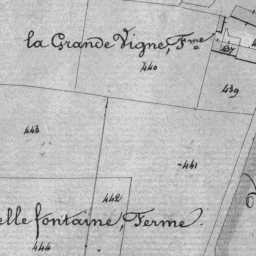 la Grande Vigne, Fme
440
437
439
443
441
442
elle fontaine, Ferme.
444